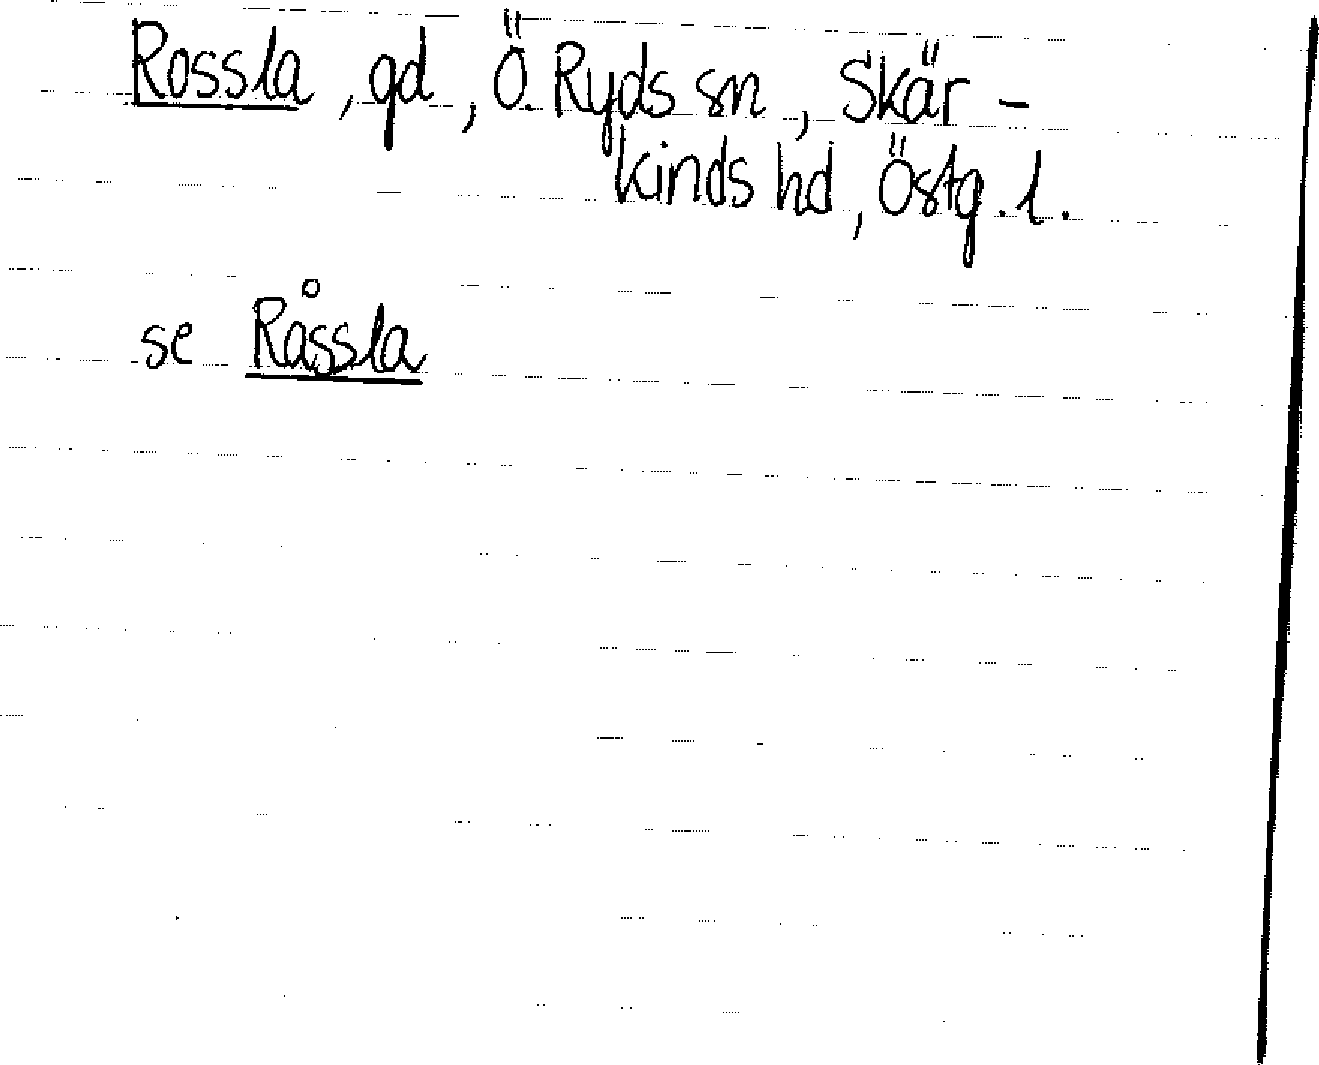 Rossla, gd, Ö. Ryds sn, Skär-
kinds hd, Östg. l.
se Råssla